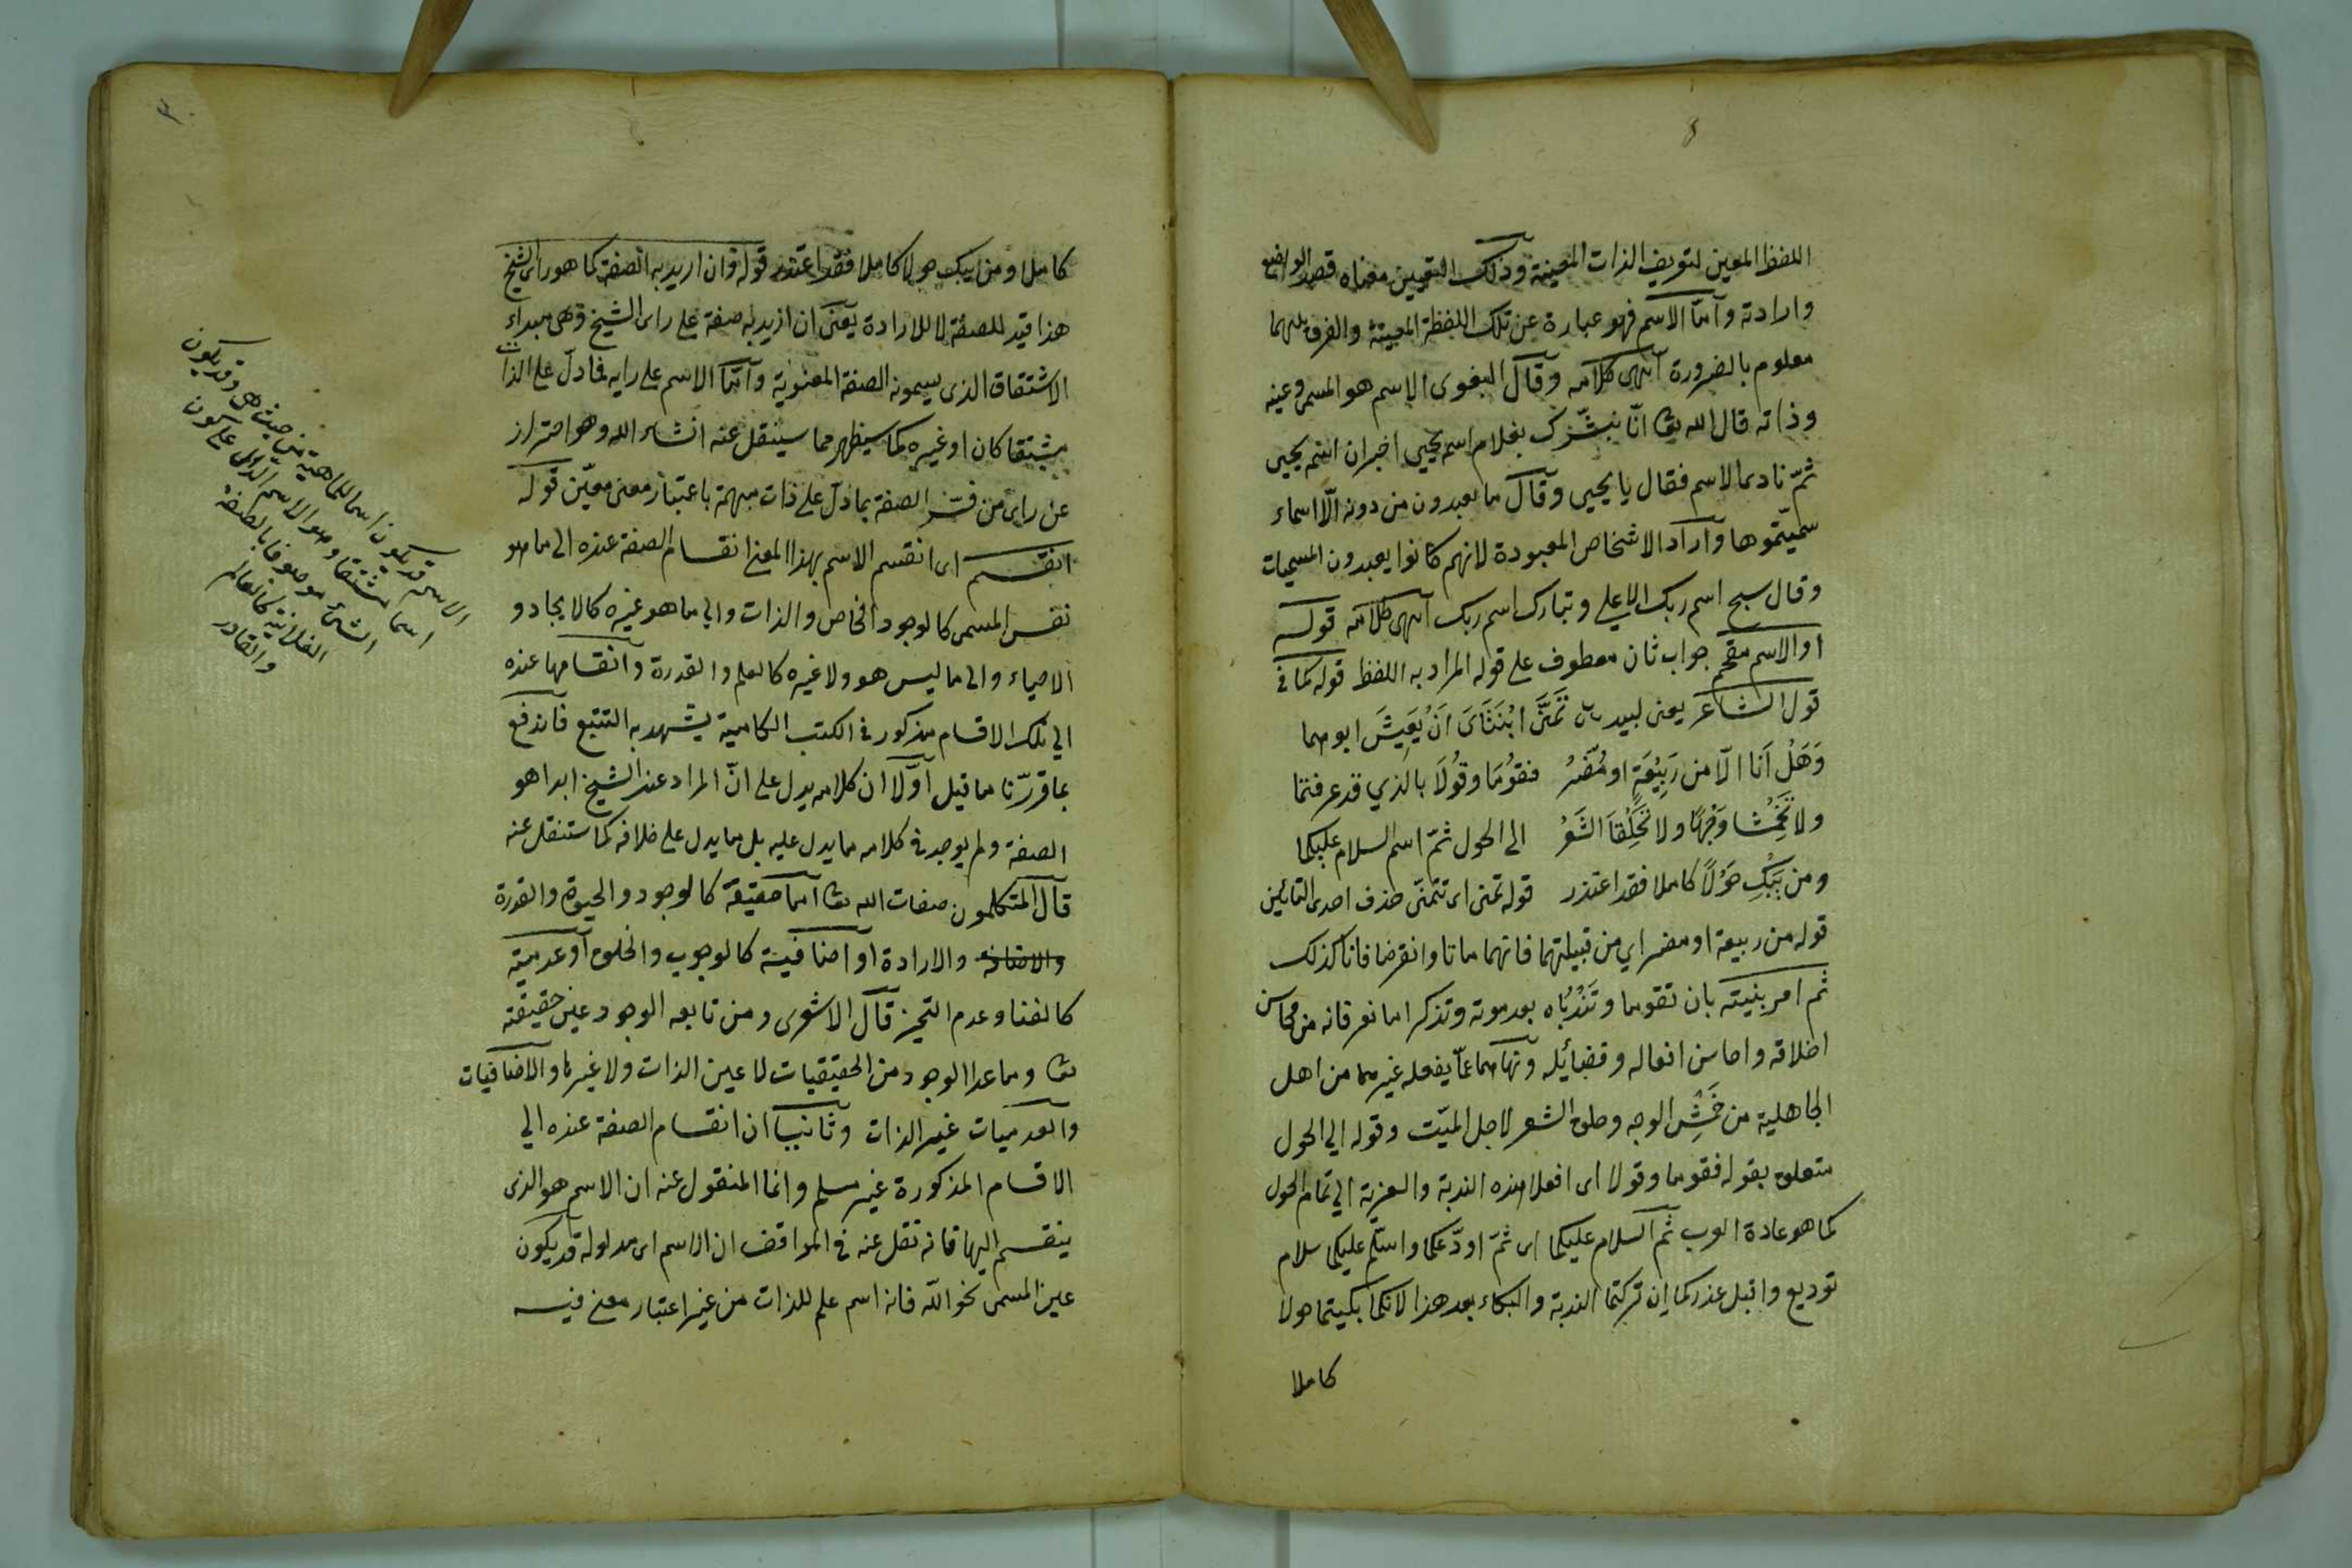 اللفظ المعين لتعريف الذات المعينة وذلك التعيين معناه قصد الواضع
وارادته وأمّا الاسم فهو عبارة عن تلك اللفظة المعينة والفرق بينهما
معلوم بالضرورة انتهى كلامه وقال البغوى الاسم هو المسمى وعينه
وذاته قال الله تعا انّا نبشّرك بغلام اسمه يحيى اخبر ان اسمه يحيى
ثمّ نادى الاسم فقال يا يحيى وقال ما تعبدون من دونه الّا اسماء
سميتموها وأراد الاشخاص المعبودة لانهم كانوا يعبدون المسميات
وقال سبح اسم ربك الاعلى وتبارك اسم ربك انتهى كلامه قوله
او الاسم مقحم جواب ثان معطوف على قوله المراد به اللفظ قوله كما في
قول الشاعر يعنى لبيد تَمَنَّى ابْنَتَاىَ اَنْ يَعِيشَ ابوهما
وَهَلْ اَنَا الّا من رَبِيْعَةٍ او مُضَرْ فقُومَا وقُولَا بالذي قد عرفتما
ولا تَخْمِشَا وَجْهًا ولا تَحْلِقَا الشَعَرْ الى الحول ثمّ اسم السلام عليكما
ومن يَبْكِ حَوْلاً كاملا فقد اعتذر قوله تمنى اى تتمنّى حذف احدى التائين
قوله من ربيعة او مضر اي من قبيلتهما فانهما ماتا وانقرضا فانا كذلك
ثم امر بنتيه بان تقوما وتَنْدُبَاه بعد موته وتذكرا ما تعرفانه من محاسن
اخلاقه واحاسن افعاله وفضائله ونهاهما عمّا يفعله غيرهما من اهل
الجاهلية من خَمْشِ الوجه وحلق الشعر لاجل الميّت وقوله الي الحول
متعلق بقوله فقوما وقولا اى افعلا هذه الندبة والعزية الي تمام الحول
كما هو عادة العرب ثم السلام عليكما اى ثمّ اودّعكما واسلّم عليكما سلام
توديع واقبل عذركما ان تركتما الندبة والبكاء بعد هذا لانكما بكيتما حولا
كاملا
كاملا ومن يبك حولا كاملا فقد اعتذر قوله وان اريد به الصفة كما هو راى الشيخ
هذا قيد للصفة لا للارادة يعنى ان اريد به صفة على راى الشيخ وهى مبداء
الاشتقاق الذى يسمونه الصفة المعنوية وأمّا الاسم على رايه فما دلّ على الذات
مشتقا كان او غيره كما سيظهر مما سينقل عنه انشاء الله وهو احتراز
عن راى من فسّر الصفة بما دلّ على ذات مبهمة باعتبار معنى معيّن قوله
انقسم اى انقسم الاسم بهذا المعنى انقسام الصفة عنده الى ما هو
نفس المسمى كالوجود الخاص والذات والى ما هو غيره كالايجاد و
الاحياء والى ما ليس هو ولا غيره كالعلم والقدرة وانقسامها عنده
الي تلك الاقسام مذكور في الكتب الكلامية يشهد به التتبع فاندفع
بما قررنا ما قيل أوّلا ان كلامه يدل على انّ المراد عند الشيخ ابدا هو
الصفة ولم يوجد في كلامه ما يدل عليه بل ما يدل على خلافه كما ستنقل عنه
قال المتكلمون صفات الله تعا اما حقيقة كالوجود والحيوة والقدرة
والاضافة والارادة أو اضافية كالوجوب والخلق أو عدمية
كالفنا وعدم التحيز قال الاشعرى ومن تابعه الوجود عين حقيقته
تعا وما عدا الوجود من الحقيقيات لا عين الذات ولا غيرها والاضافيات
والعدميات غير الذات وثانيا ان انقسام الصفة عنده الي
الاقسام المذكورة غير مسلم وانما المنقول عنه ان الاسم هو الذى
ينقسم اليها فانه نقل عنه في المواقف ان الاسم اى مدلوله قد يكون
عين المسمى نحو اللّه فانه اسم علم للذات من غير اعتبار معنى فيه
الاسم قد يكون اسما للماهية من حيث هى وقد يكون
اسما مشتقا وهو الاسم الدال على كون
الشئ موصوفا بالصفة
الفلانية كالعالم
والقادر